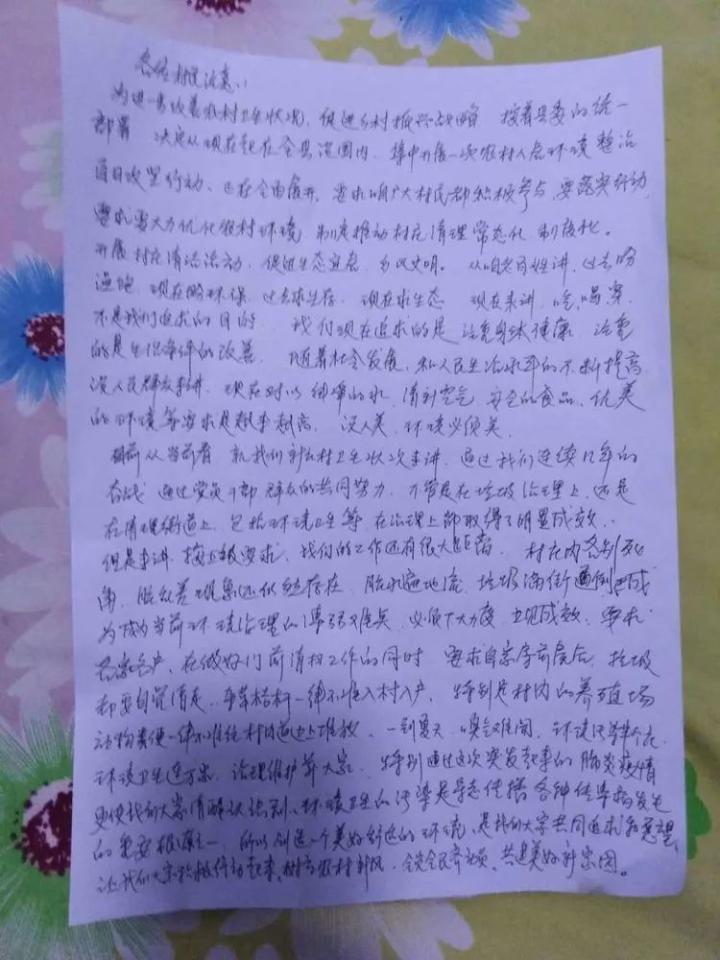 各位村民注意:
为进一步改善农村卫生状况,促进乡村振兴战略 按着县委的统一
部署 决定从现在起在全县范围内,集中开展一次农村人居环境整治
百日攻坚行动、正在全面展开,要求咱广大村民都积极参与,要落实行动
要求要大力优化农村环境 制度推动村庄清理常态化 制度化。
开展村庄清洁活动,促进生态宜居,乡风文明。从咱老百姓讲,过去盼
温饱 现在盼环保 过去求生存 现在求生态 现在来讲,吃,喝,穿
不是我们追求的目的 我们现在追求的是 注重身体健康 注重
的是生活条件的改善 随着社会发展,和人民生活水平的不断提高
人民群众来讲,现在对以 的水 清新空气 安全的食品,优美
的环境等要求是越来越高, 环境必须美
目前从当前看 就我们 村卫生状况来讲,通过我们连续几年的
奋战 通过党员干部 群众的共同努力,不管是在垃圾治理上 还是
在清理街道上,包括环境卫生等 在治理上都取得了明显成效.
但是来讲 按上级要求,我们的工作还有很大距离, 村庄内 个别死
角,脏乱差现象还仍然存在,脏水遍地流,垃圾满街
为 当前环境治理的薄弱难点 必须下大力度 立见成效,要求
各家各户,在做好门前清扫工作的同时 要求自家房前屋后,垃圾
都要自觉清走, 秸秆一律不准入村入户, 特别是村内的养殖场
动物粪便一律不准往村内道边上堆放,一到夏天,臭气难闻,
环境卫生连万家,治理维护靠大家, 特别通过这次突发起来的肺炎疫情
更使我们大家清醒认识到,环境卫生的污染是导致传播各种传染病发生
的重要根源之一,所以创造一个美好舒适的环境,是我们大家共同追求和愿望
让我们大家积极行动起来,树立农村新风,全党全民齐 ,共建美好新家园。